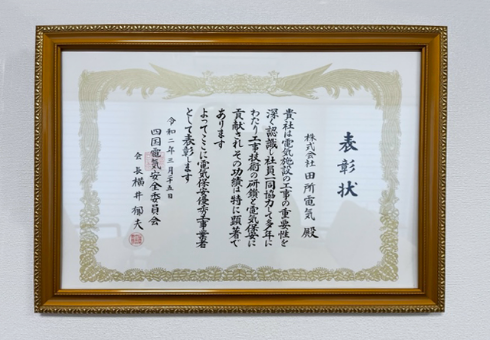 表彰状
株式会社田所電気 殿
貴社は電気施設の工事の重要性を
深く認識し社員一同協力して多年に
わたり工事技術の研鑽と電気保安に
貢献されその功績は特に顕著で
あります
よってここに電気保安優秀工事業者
として表彰します
令和二年三月二十五日
四国電気安全委員会
会長 横井 郁夫